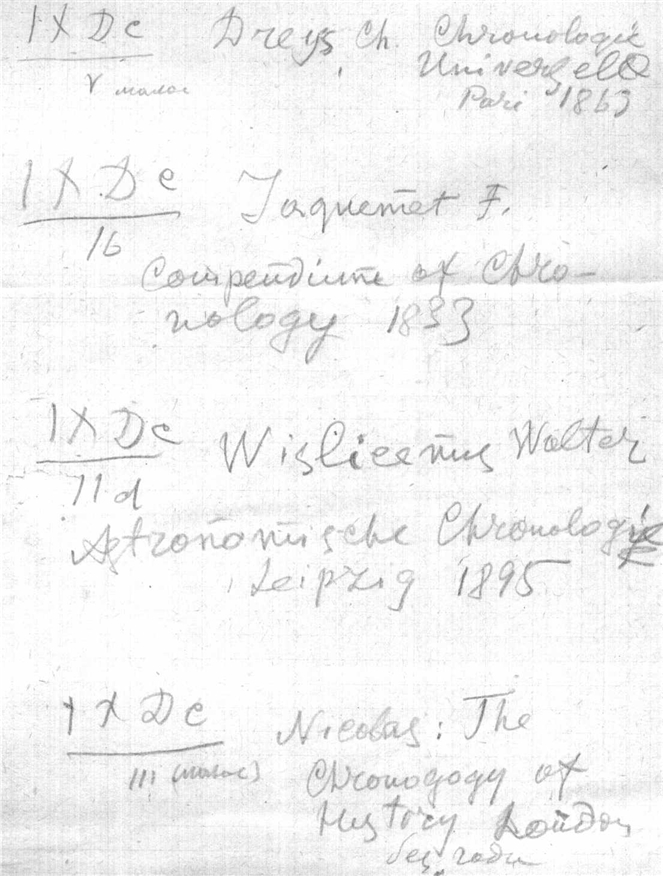 IX Dc Dreys Ch. Chronologie
Universelle
V малое Pari 1863
IX Dc Jaquemet F.
16
Compendium of Chro-
nology 1833
IX Dc Wislicenus Walter
11 d
Astronomische Chronologie
Leipzig 1895
IX Dc Nicolas: The
III (малое) Chronogogy of
History London
без года